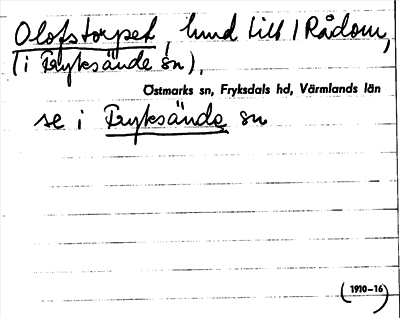 Olofstorpet, hmd till 1 Rådom,
(i Fryksände sn),
Östmarks sn, Fryksdals hd, Värmlands län
se i Fryksände sn
(1910–16)